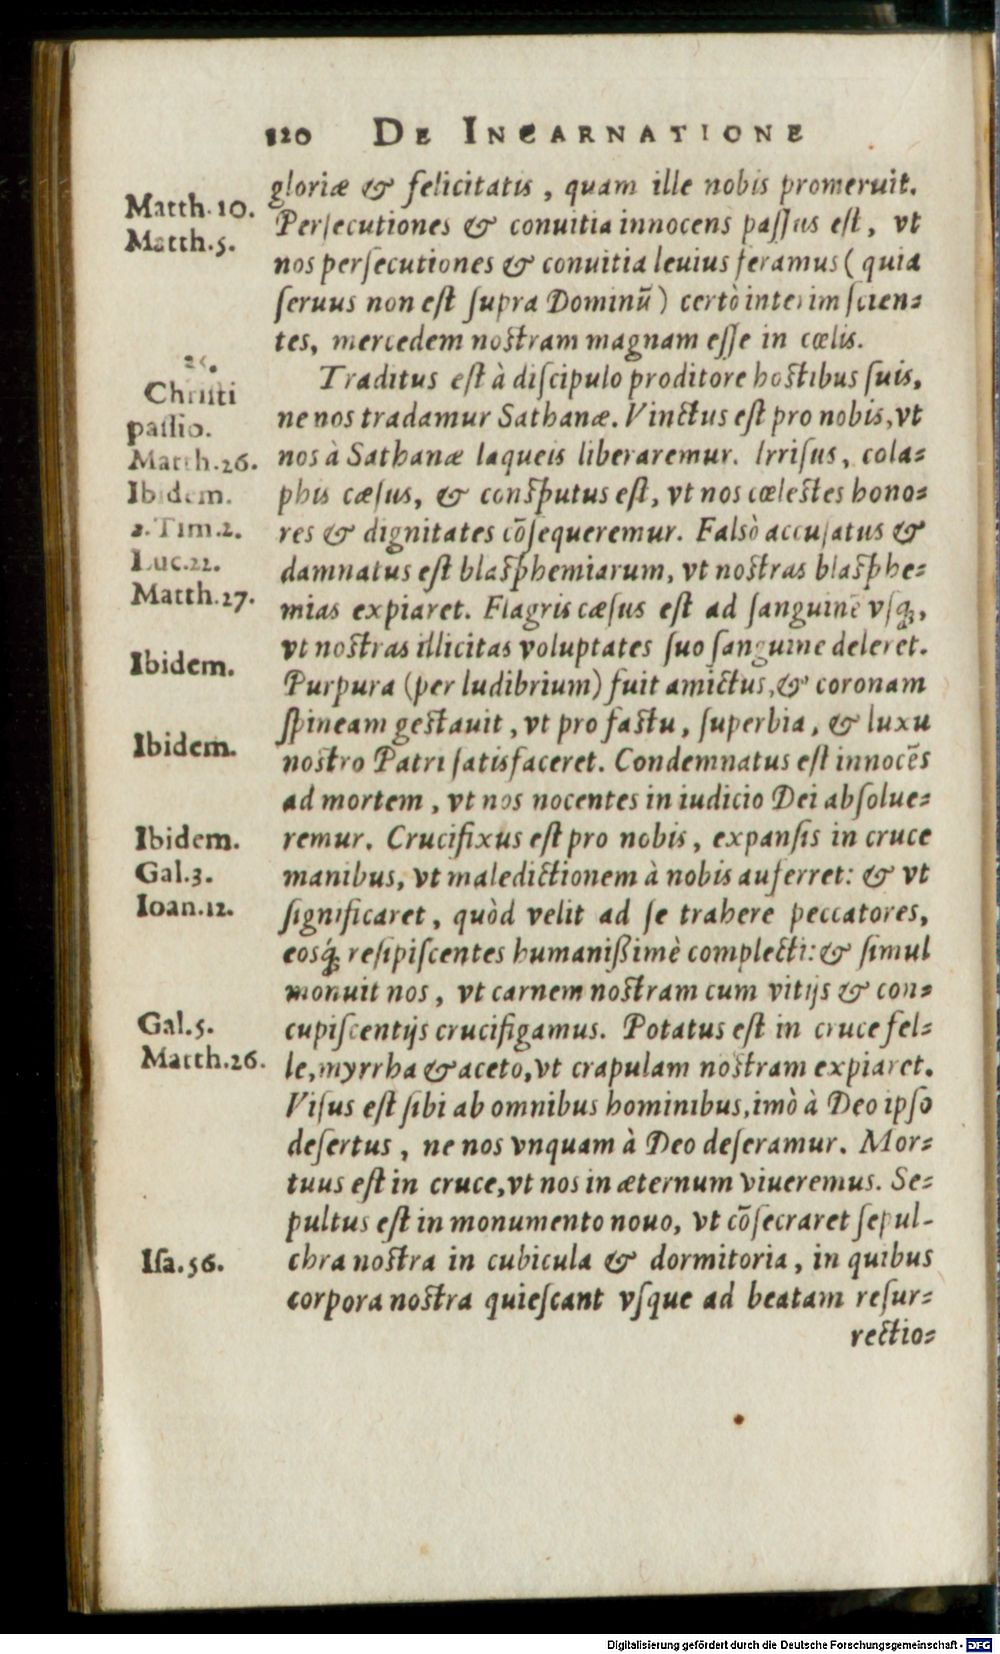 120 DE INCARNATIONE
gloriæ & felicitatis, quam ille nobis promeruit.
Matth. 10.
Persecutiones & conuitia innocens passus est, vt
Matth. 5.
nos persecutiones & conuitia leuius feramus (quia
seruus non est supra Dominū) certò interim scien=
tes, mercedem nostram magnam esse in cœlis.
Traditus est à discipulo proditore hostibus suis,
Christi
ne nos tradamur Sathanæ. Vinctus est pro nobis, vt
passio.
nos à Sathanæ laqueis liberaremur. Irrisus, cola=
Matth. 26.
phis cæsus, & consputus est, vt nos cœlestes hono=
Ibidem.
res & dignitates cōsequeremur. Falsò accusatus &
2. Tim. 2.
damnatus est blasphemiarum, vt nostras blasphe=
Luc. 22.
mias expiaret. Flagris cæsus est ad sanguinē vsq́;,
Matth. 27.
vt nostras illicitas voluptates suo sanguine deleret.
Ibidem.
Purpura (per ludibrium) fuit amictus, & coronam
spineam gestauit, vt pro fastu, superbia, & luxu
Ibidem.
nostro Patri satisfaceret. Condemnatus est innocēs
ad mortem, vt nos nocentes in iudicio Dei absolue=
Ibidem.
remur. Crucifixus est pro nobis, expansis in cruce
Gal. 3.
manibus, vt maledictionem à nobis auferret: & vt
Ioan. 12.
significaret, quòd velit ad se trahere peccatores,
eosq́; resipiscentes humanißimè complecti: & simul
monuit nos, vt carnem nostram cum vitijs & con=
Gal. 5.
cupiscentijs crucifigamus. Potatus est in cruce fel=
Matth. 26.
le, myrrha & aceto, vt crapulam nostram expiaret.
Visus est sibi ab omnibus hominibus, imò à Deo ipso
desertus, ne nos vnquam à Deo deseramur. Mor=
tuus est in cruce, vt nos in æternum viueremus. Se=
pultus est in monumento nouo, vt cōsecraret sepul-
Isa. 56.
chra nostra in cubicula & dormitoria, in quibus
corpora nostra quiescant vsque ad beatam resur=
rectio=
Digitalisierung gefördert durch die Deutsche Forschungsgemeinschaft - DFG